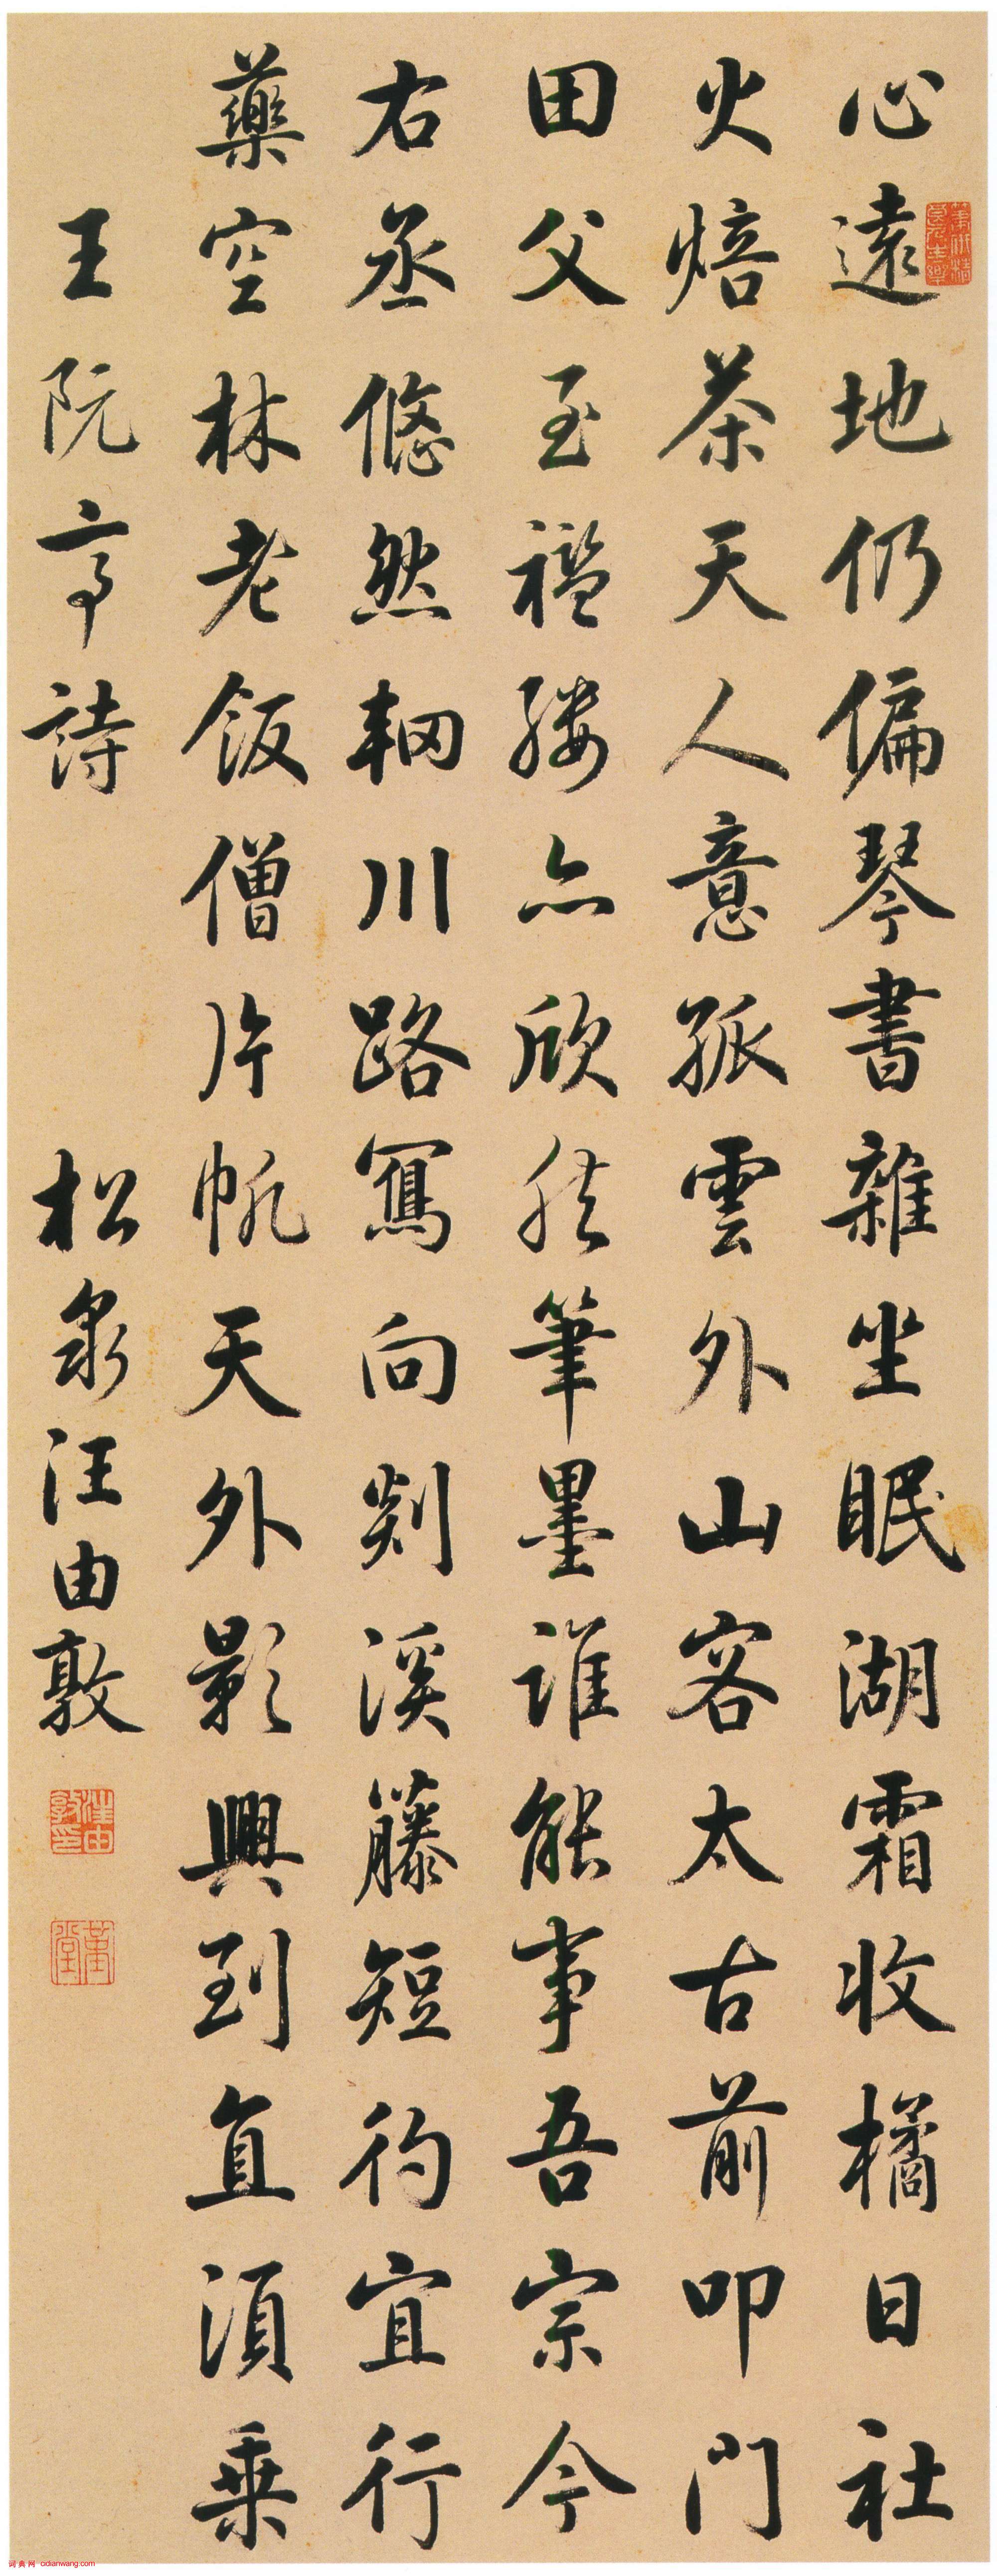 心遠地仍偏琴書雜坐眠湖霜收橘日社
火焙茶天人意孤雲外山客太古前叩門
田父至襤縷亦欣然筆墨誰能事吾宗今
右丞悠然輞川路寫向剡溪藤短彴宜行
藥空林老飯僧片帆天外影興到直須乗
王阮亭詩
松泉汪由敦
汪由敦印
词典网 cidianwang.com